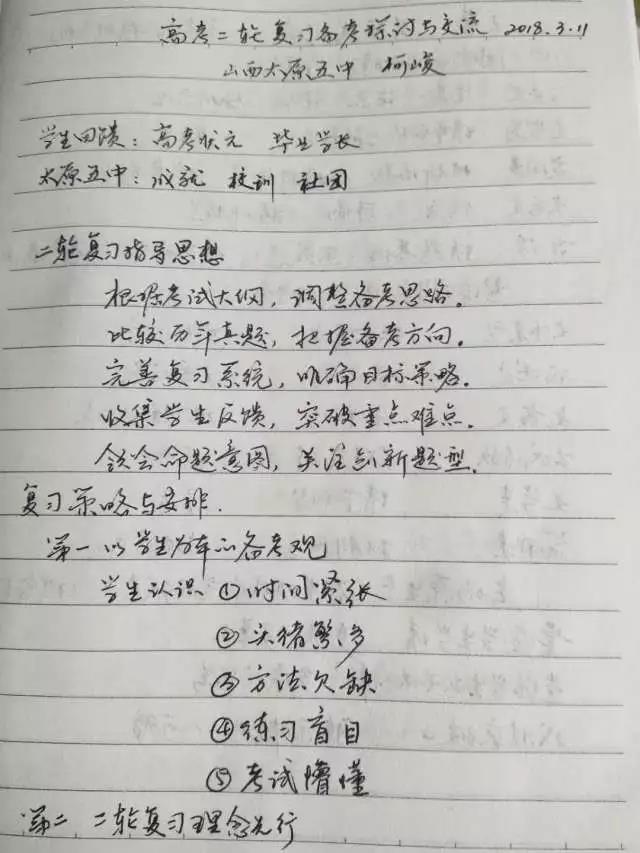 高考二轮复习备考探讨与交流 2018.3.11
山西太原五中 柯峻
学生回馈：高考状元 毕业学长
太原五中：成就 校训 社团
二轮复习指导思想
根据考试大纲，调整备考思路。
比较历年真题，把握备考方向。
完善复习系统，明确目标策略。
收集学生反馈，突破重点难点。
领会命题意图，关注创新题型。
复习策略与安排.
第一 以学生为本的备考观
学生认识 ①时间紧张
②头绪繁多
③方法欠缺
④练习盲目
⑤考试懵懂
第二 二轮复习理念先行